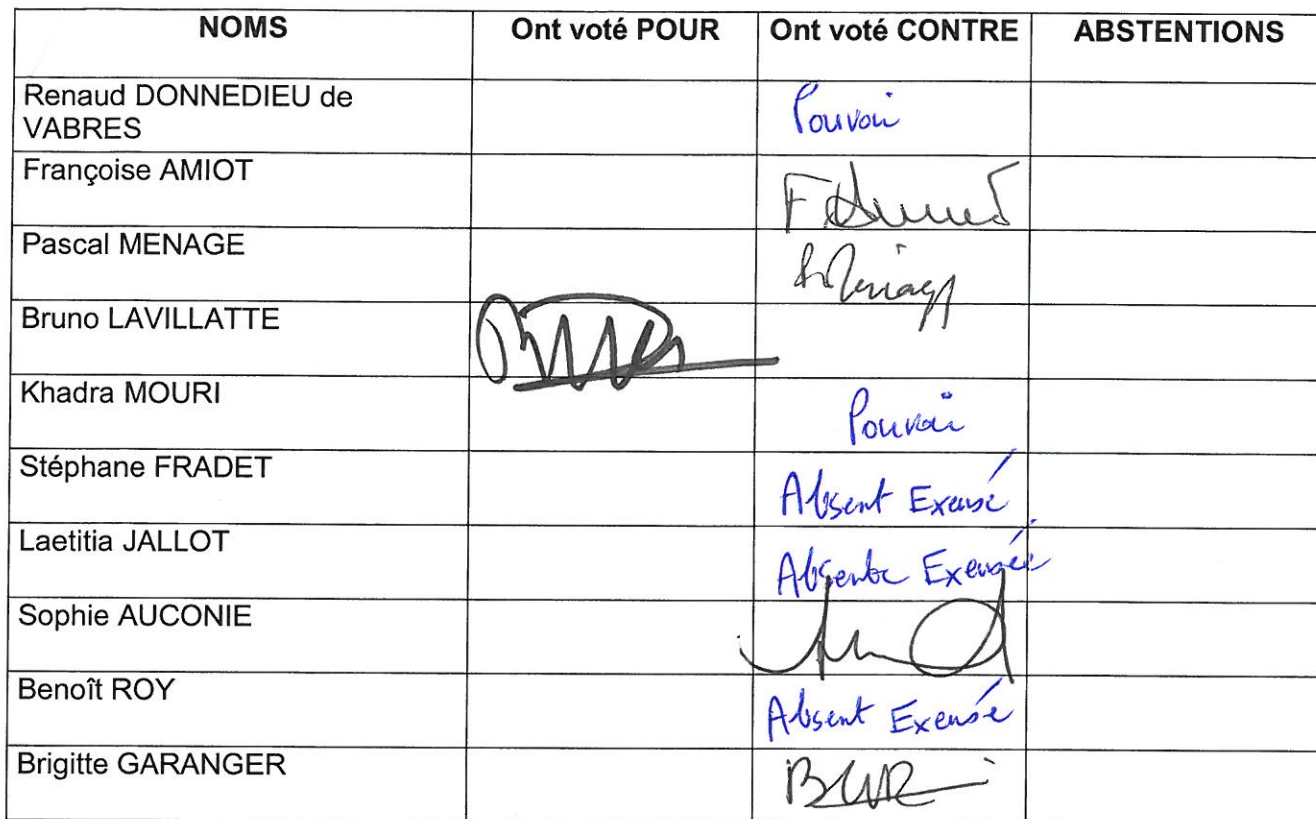 NOMS Ont voté POUR Ont voté CONTRE ABSTENTIONS
Renaud DONNEDIEU de
VABRES
Pouvoir
Françoise AMIOT
Pascal MENAGE
Bruno LAVILLATTE
Khadra MOURI
Pouvoir
Stéphane FRADET
Absent Excusé
Laetitia JALLOT
Absente Excusée
Sophie AUCONIE
Benoît ROY
Absent Excusé
Brigitte GARANGER